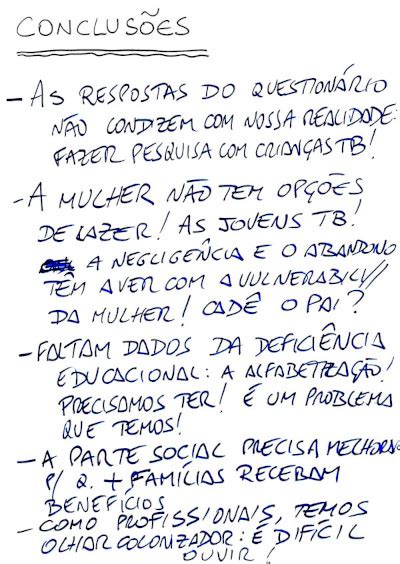 CONCLUSÕES
- AS RESPOSTAS DO QUESTIONÁRIO
NÃO CONDIZEM COM NOSSA REALIDADE:
FAZER PESQUISA COM CRIANÇAS TB!
- A MULHER NÃO TEM OPÇÕES
DE LAZER! AS JOVENS TB!
A NEGLIGÊNCIA E O ABANDONO
TÊM A VER COM A VULNERABILI//
DA MULHER! CADÊ O PAI?
- FALTAM DADOS DA DEFICIÊNCIA
EDUCACIONAL: A ALFABETIZAÇÃO!
PRECISAMOS TER! É UM PROBLEMA
QUE TEMOS!
- A PARTE SOCIAL PRECISA MELHORAR
P/ Q. + FAMÍLIAS RECEBAM
BENEFÍCIOS
- COMO PROFISSIONAIS, TEMOS
OLHAR COLONIZADOR: É DIFÍCIL
OUVIR!